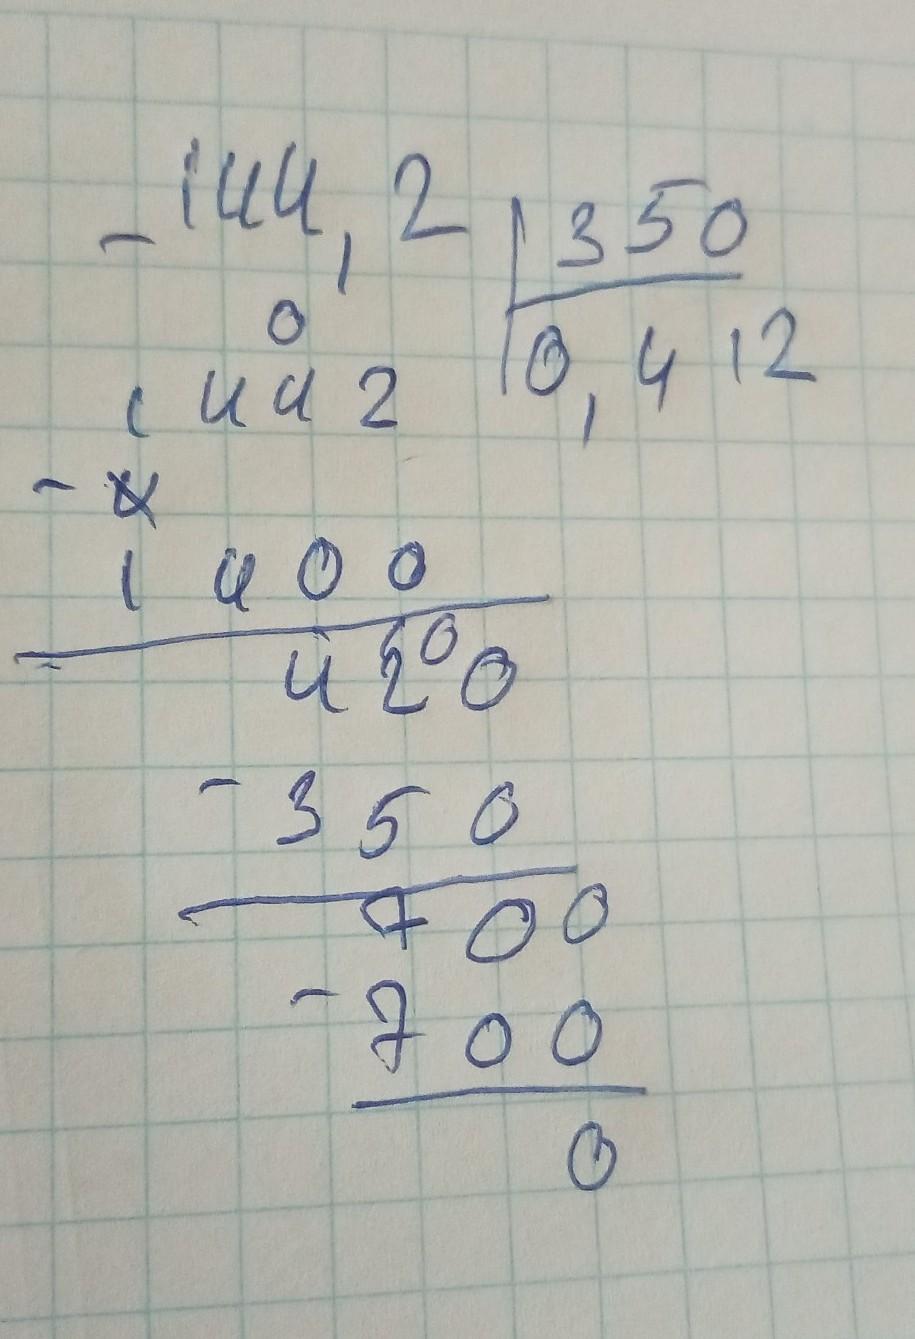 - 144,2 | 350
0 0,412
1442
-
1400
420 0
- 350
700
- 700
0